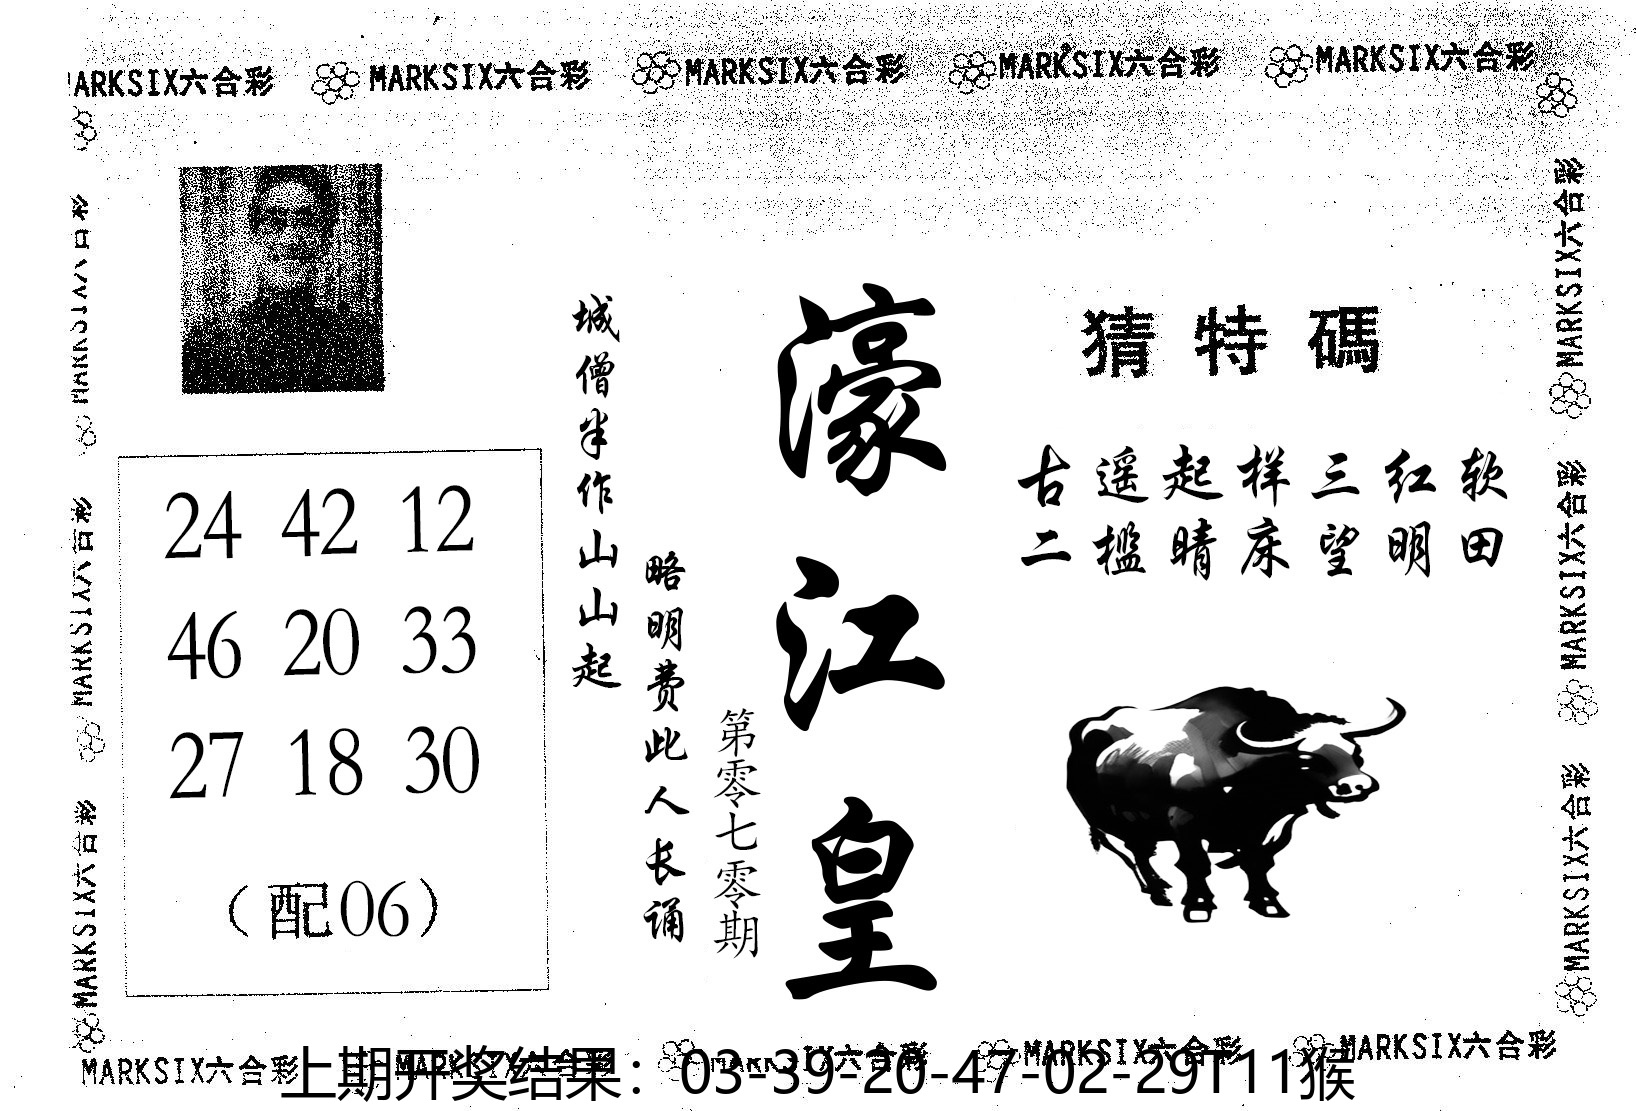 MARKSIX六合彩 MARKSIX六合彩 MARKSIX六合彩 MARKSIX六合彩 MARKSIX六合彩
MARKSIX六合彩
MARKSIX六合彩
MARKSIX六合彩
24 42 12
46 20 33
27 18 30
（配06）
城僧半作山山起
略明费此人长诵
第零七零期
濠江皇
猜特碼
古遥起样三红软
二槛晴床望明田
MARKSIX六合彩
MARKSIX六合彩
MARKSIX六合彩
MARKSIX六合彩 MARKSIX六合彩 MARKSIX六合彩 MARKSIX六合彩 MARKSIX六合彩
上期开奖结果：03-39-20-47-02-29T11猴